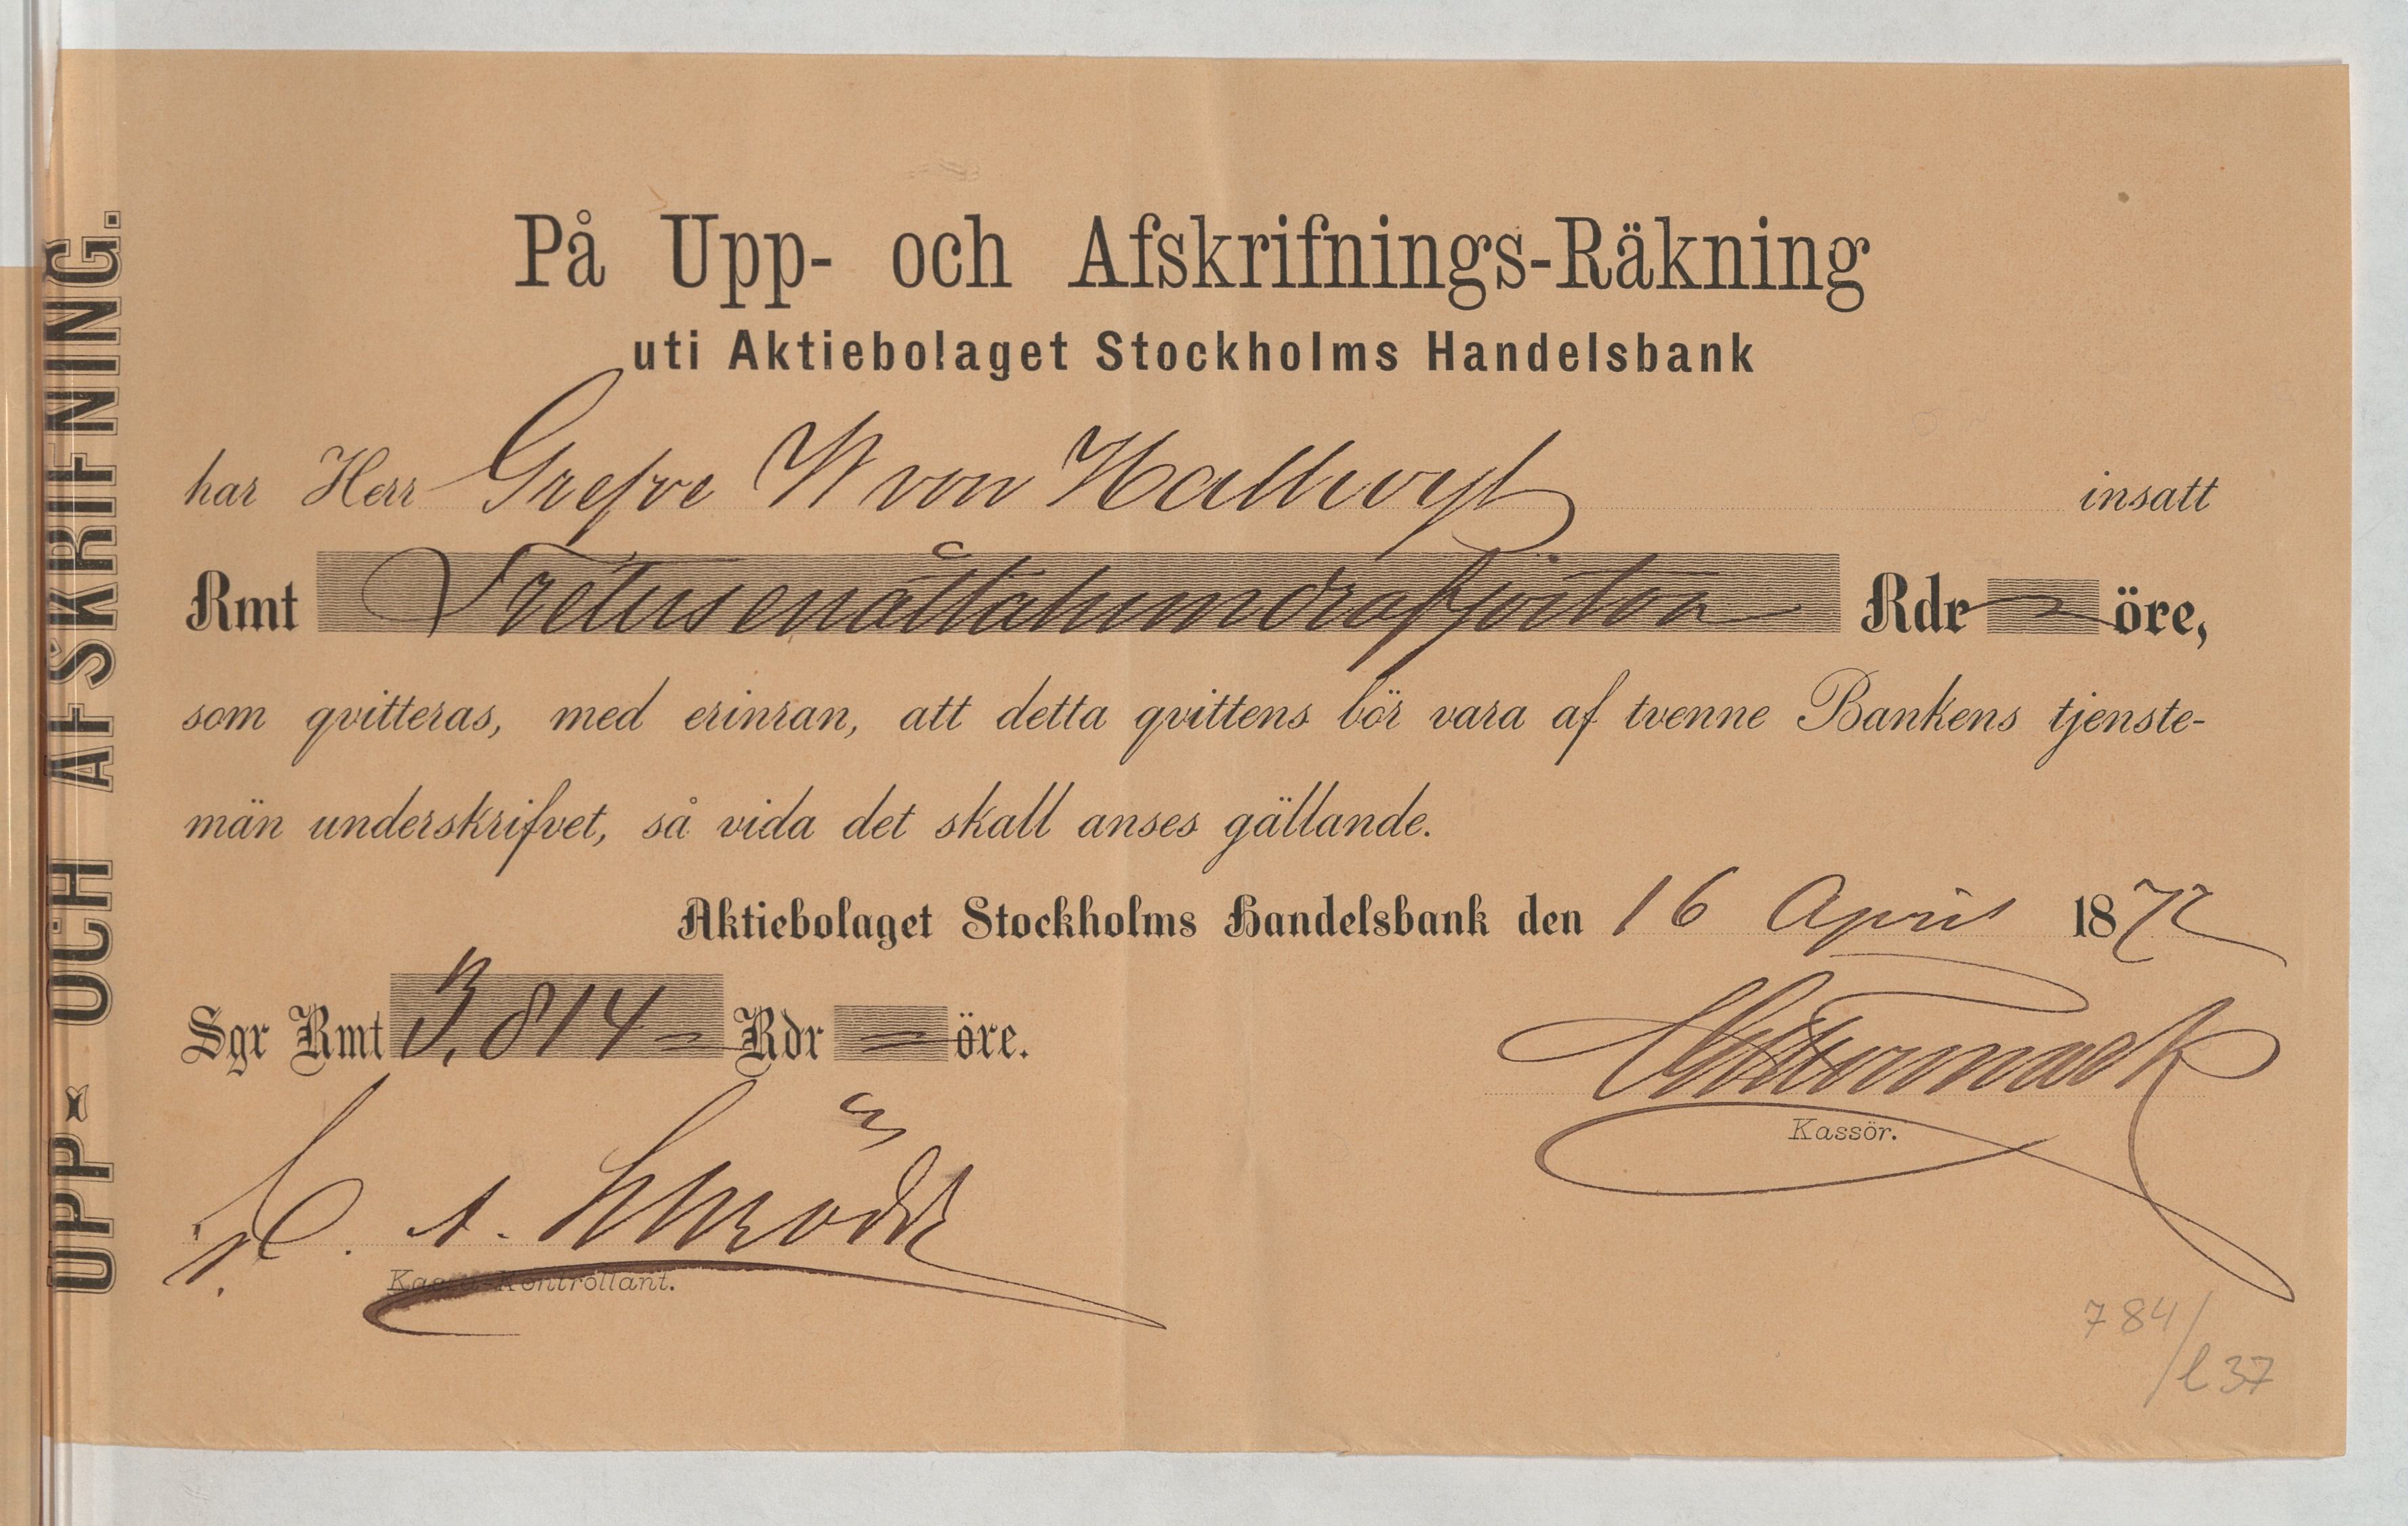 UPP- OCH AFSKRIFNING.
På Upp- och Afskrifnings-Räkning
uti Aktiebolaget Stockholms Handelsbank
har Herr Grefve W von Hallwyl insatt
Rmt Tretusenåttahundrafjorton Rdr öre,
som qvitteras, med erinran, att detta qvittens bör vara af tvenne Bankens tjenste-
män underskrifvet, så vida det skall anses gällande.
Aktiebolaget Stockholms Handelsbank den 16 April 1872
Sgr Rmt 3,814 = Rdr = öre.
Kassör.
Kassa-Kontrollant.
784/
l 37